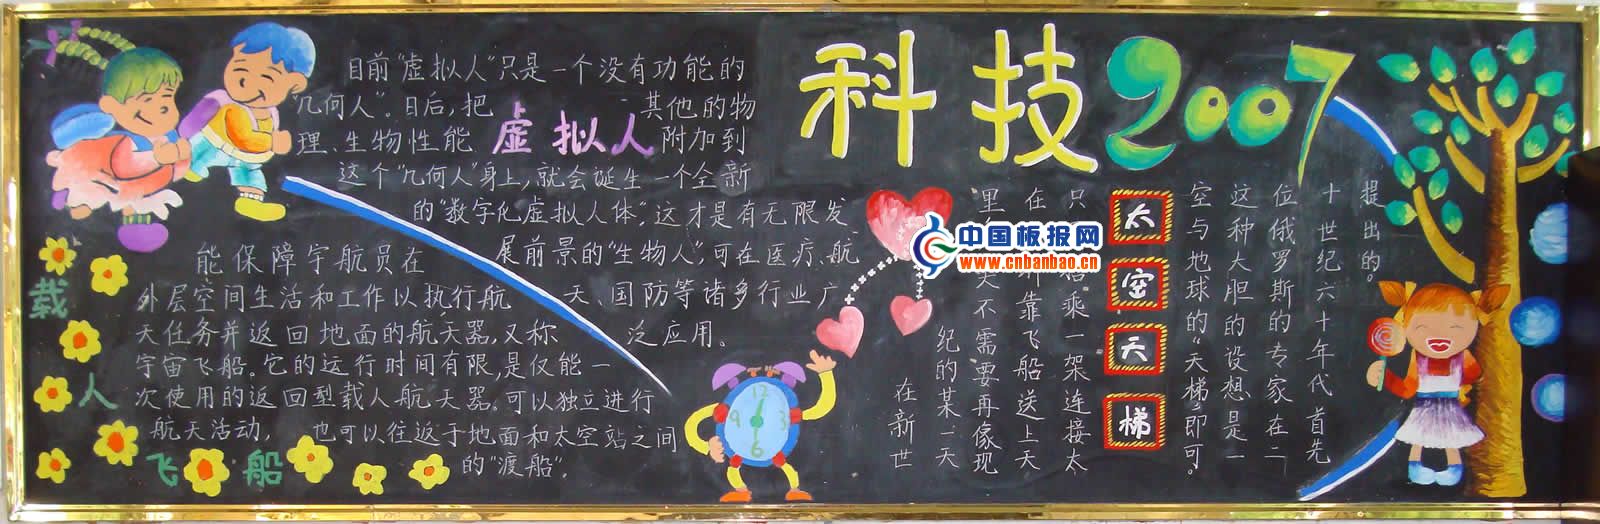 科技2007
虚拟人
目前"虚拟人"只是一个没有功能的
"几何人"。日后,把 其他的物
理、生物性能 附加到
这个"几何人"身上,就会诞生一个全新
的"数字化虚拟人体",这才是有无限发
展前景的"生物人",可在医疗、航
天、国防等诸多行业广
泛应用。
载人飞船
能保障宇航员在
外层空间生活和工作以执行航
天任务并返回地面的航天器,又称
宇宙飞船。它的运行时间有限,是仅能一
次使用的返回型载人航天器。可以独立进行
航天活动, 也可以往返于地面和太空站之间
的"渡船"。
太空天梯
在新世
纪的某一天
里 天不需要再像现
在 靠飞船送上天
只 乘一架连接太
空与地球的"天梯"即可。
这种大胆的设想是一
位俄罗斯的专家在二
十世纪六十年代首先
提出的。
中国板报网
www.cnbanbao.cn
12
3
6
9